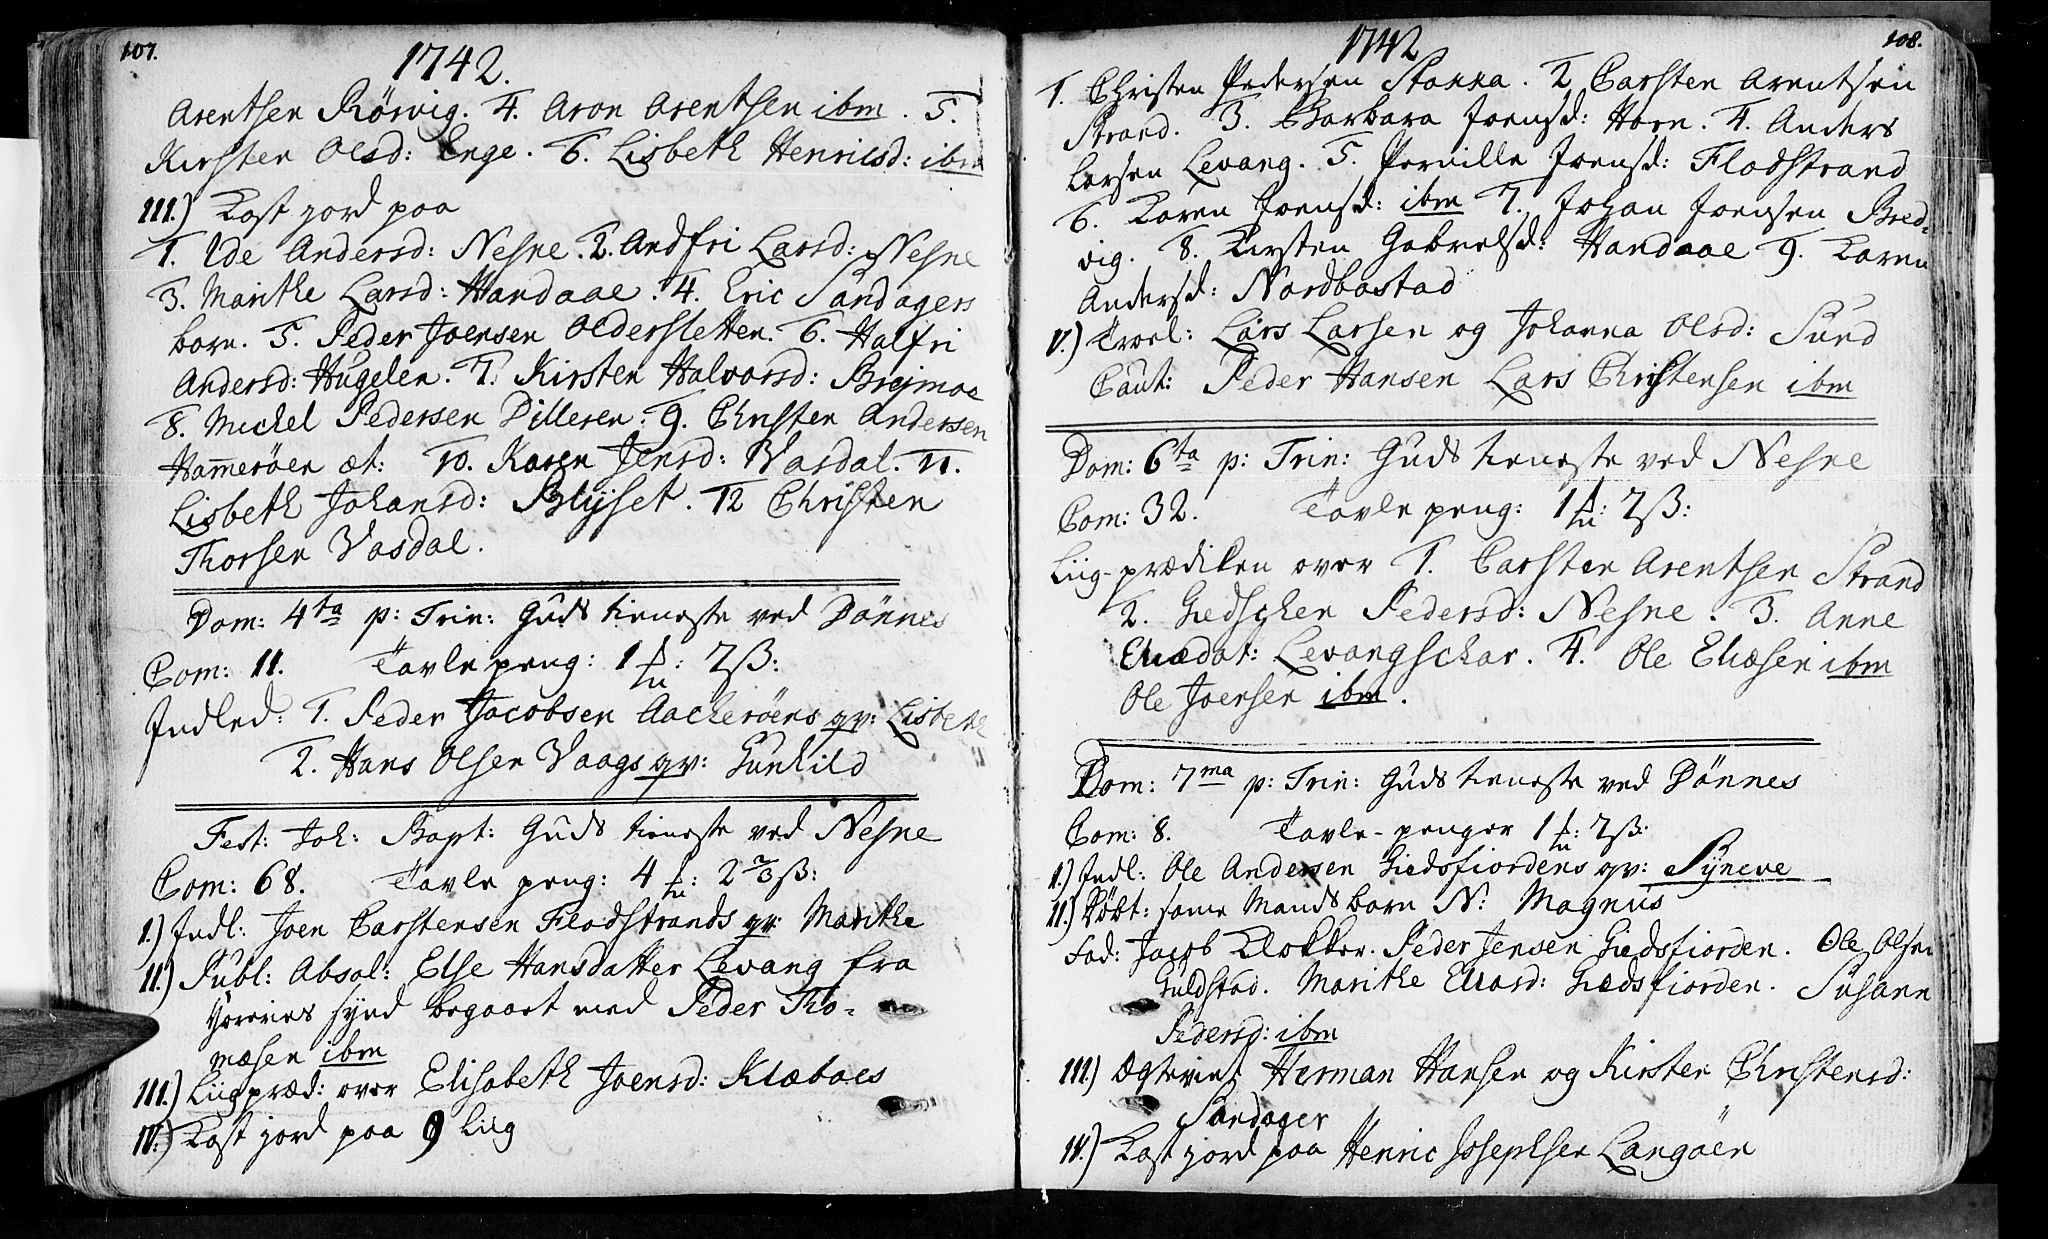 107.
1742.
Arentsen Rörvig. 4. Aron Arentsen ibm. 5.
Kirsten Olsd: Enge. 6. Lisbeth Henricsd: ibm
III.) Kast jord paa
1. Ide Andersd: Nesne. 2. Andfri Larsd: Nesne
3. Marithe Larsd: Handaae. 4. Eric Sandagers
barn. 5. Peder Joensen Oldersletten. 6. Halfri
Andersd: Hugelen. 7. Kirsten Halvorsd: Brejmoe
8. Michel Pedersen Dilleren. 9. Christen Andersen
Hameröen æt: 10. Karen Jensd: Vasdal. 11.
Lisbeth Johansd: Blijset. 12 Christen
Thorsen Vasdal.
Dom: 4ta p: Trin: Guds tieneste ved Dönnes
Com: 11. Tavle peng: 1 : 7ß:
Indled: 1. Peder Jacobsen Aacheröens qv: Lisbeth
2. Hans Olsen Vaags qv: Gunhild
Fest: Joh: Bapt: Guds tieneste ved Nesne
Com: 68. Tavle peng: 4 : 2 2/3 ß:
I.) Indl: Joen Carstensen Flodstrands qv: Marithe
II.) Publ: Absol: Else Hansdatter Levang fra
Horeries synd begaaet med Peder Tho-
mæsen ibm
III.) Liigpræd: over Elisabeth Joensd: Klæboes
IV.) Kast jord paa 9 Liig
108.
1742
1. Christen Pedersen Stokka. 2 Carsten Arentsen
Strand. 3. Barbara Joensd: Horn. 4. Anders
Larsen Levang. 5. Pernille Joensd: Flodstrand
6. Karen Joensd: ibm 7. Johan Joensen Bred-
vig. 8. Kirsten Gabrelsd: Handaae 9. Karen
Andersd: Nordbostad
V.) Trol: Lars Larsen og Johanna Olsd: Sund
Caut: Peder Hansen Lars Christensen ibm
Dom: 6ta p: Trin: Guds tieneste ved Nesne
Com: 32. Tavle peng: 1 : 7ß:
Liig-prædiken over 1. Carsten Arentsen Strand
2. Giedschen Pedersd: Nesne. 3. Anne
Eliædat: Levangschar. 4. Ole Eliæsen ibm
Ole Joensen ibm.
Dom: 7ma p: Trin: Guds tieneste ved Dönnes
Com: 8. Tavle-penger 1 : 7ß:
I.) Indl: Ole Andersen Giedsfiordens qv: Syneve
II.) Döbt: same Mands barn N: Magnus
Fad: Jacob Klokker. Peder Jensen Giedsfiorden. Ole Olsen
Guldstad. Marithe Eliasd: Giedsfiorden. Susann
Pedersd: ibm
III.) Ægteviet Herman Hansen og Kirsten Christensd:
Sandager
IV.) Kast jord paa Henric Josephsen Langöen